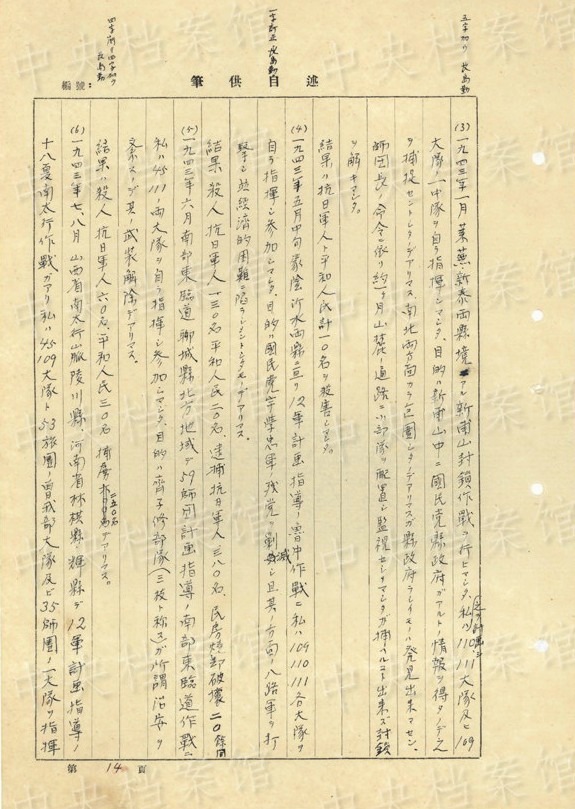 五字加ウ 長島勤
一字訂正 長島勤
四字削リ四字加ウ
長島勤
編號：
筆供自述
(3)一九四三年一月萊蕪新泰両縣境ニアル新甫山封鎖作戦ヲ行ヒマシタ、私ハ之ヲ計画シ110 111大隊及ビ109
大隊ノ一中隊ヲ自ラ指揮シマシタ、目的ハ新甫山中ニ國民党縣政府ガアルトノ情報ヲ得タノデ之
ヲ捕捉セントシタノデアリマス、南北両方面カラ包圍シタノデアリマスガ縣政府ラシイモノハ発見出来マセン、
師団長ノ命令ニ依リ約一ヶ月山麓ノ道路ニ小部隊ヲ配置シ監視セシメマシタガ捕ヘルコト出来ズ封鎖
ヲ解キマシタ。
結果ハ抗日軍人ト平和人民計一〇名ヲ殺害シマシタ。
(4)一九四三年五月中旬蒙陰沂水両縣ニ亘リ12軍計画指導ノ魯中作戦ニ私ハ109 110 111各大隊ヲ
自ラ指揮シ参加シマシタ、目的ハ國民党于學忠軍ノ残党ヲ剿滅シ且其ノ方面ノ八路軍ヲ打
撃シ並経済的困難ニ陥ラシメントシタノデアリマス。
結果殺人抗日軍人一三〇名平和人民二〇名、逮捕抗日軍人三八〇名、民房焼却破壊二〇餘間
(5)一九四三年六月南部東臨道聊城縣北方地域デ59師団計画指導ノ南部東臨道作戦ニ
私ハ45 111ノ両大隊ヲ自ラ指揮シ参加シマシタ、目的ハ齊子修部隊(三枝ト称ス)ガ所謂治安ヲ
紊スノデ其ノ武装解除デアリマス。
結果ハ殺人抗日軍人六〇名平和人民三〇名捕虜二五〇名デアリマス。
(6)一九四三年七、八月山西省南太行山脈陵川縣、河南省林棋縣輝縣デ12軍計画指導ノ
十八夏南太行作戦ガアリ私ハ45 109大隊ト53旅團ノ曾我部大隊及ビ35師團ノ一大隊ヲ指揮
第14頁
中央档案馆